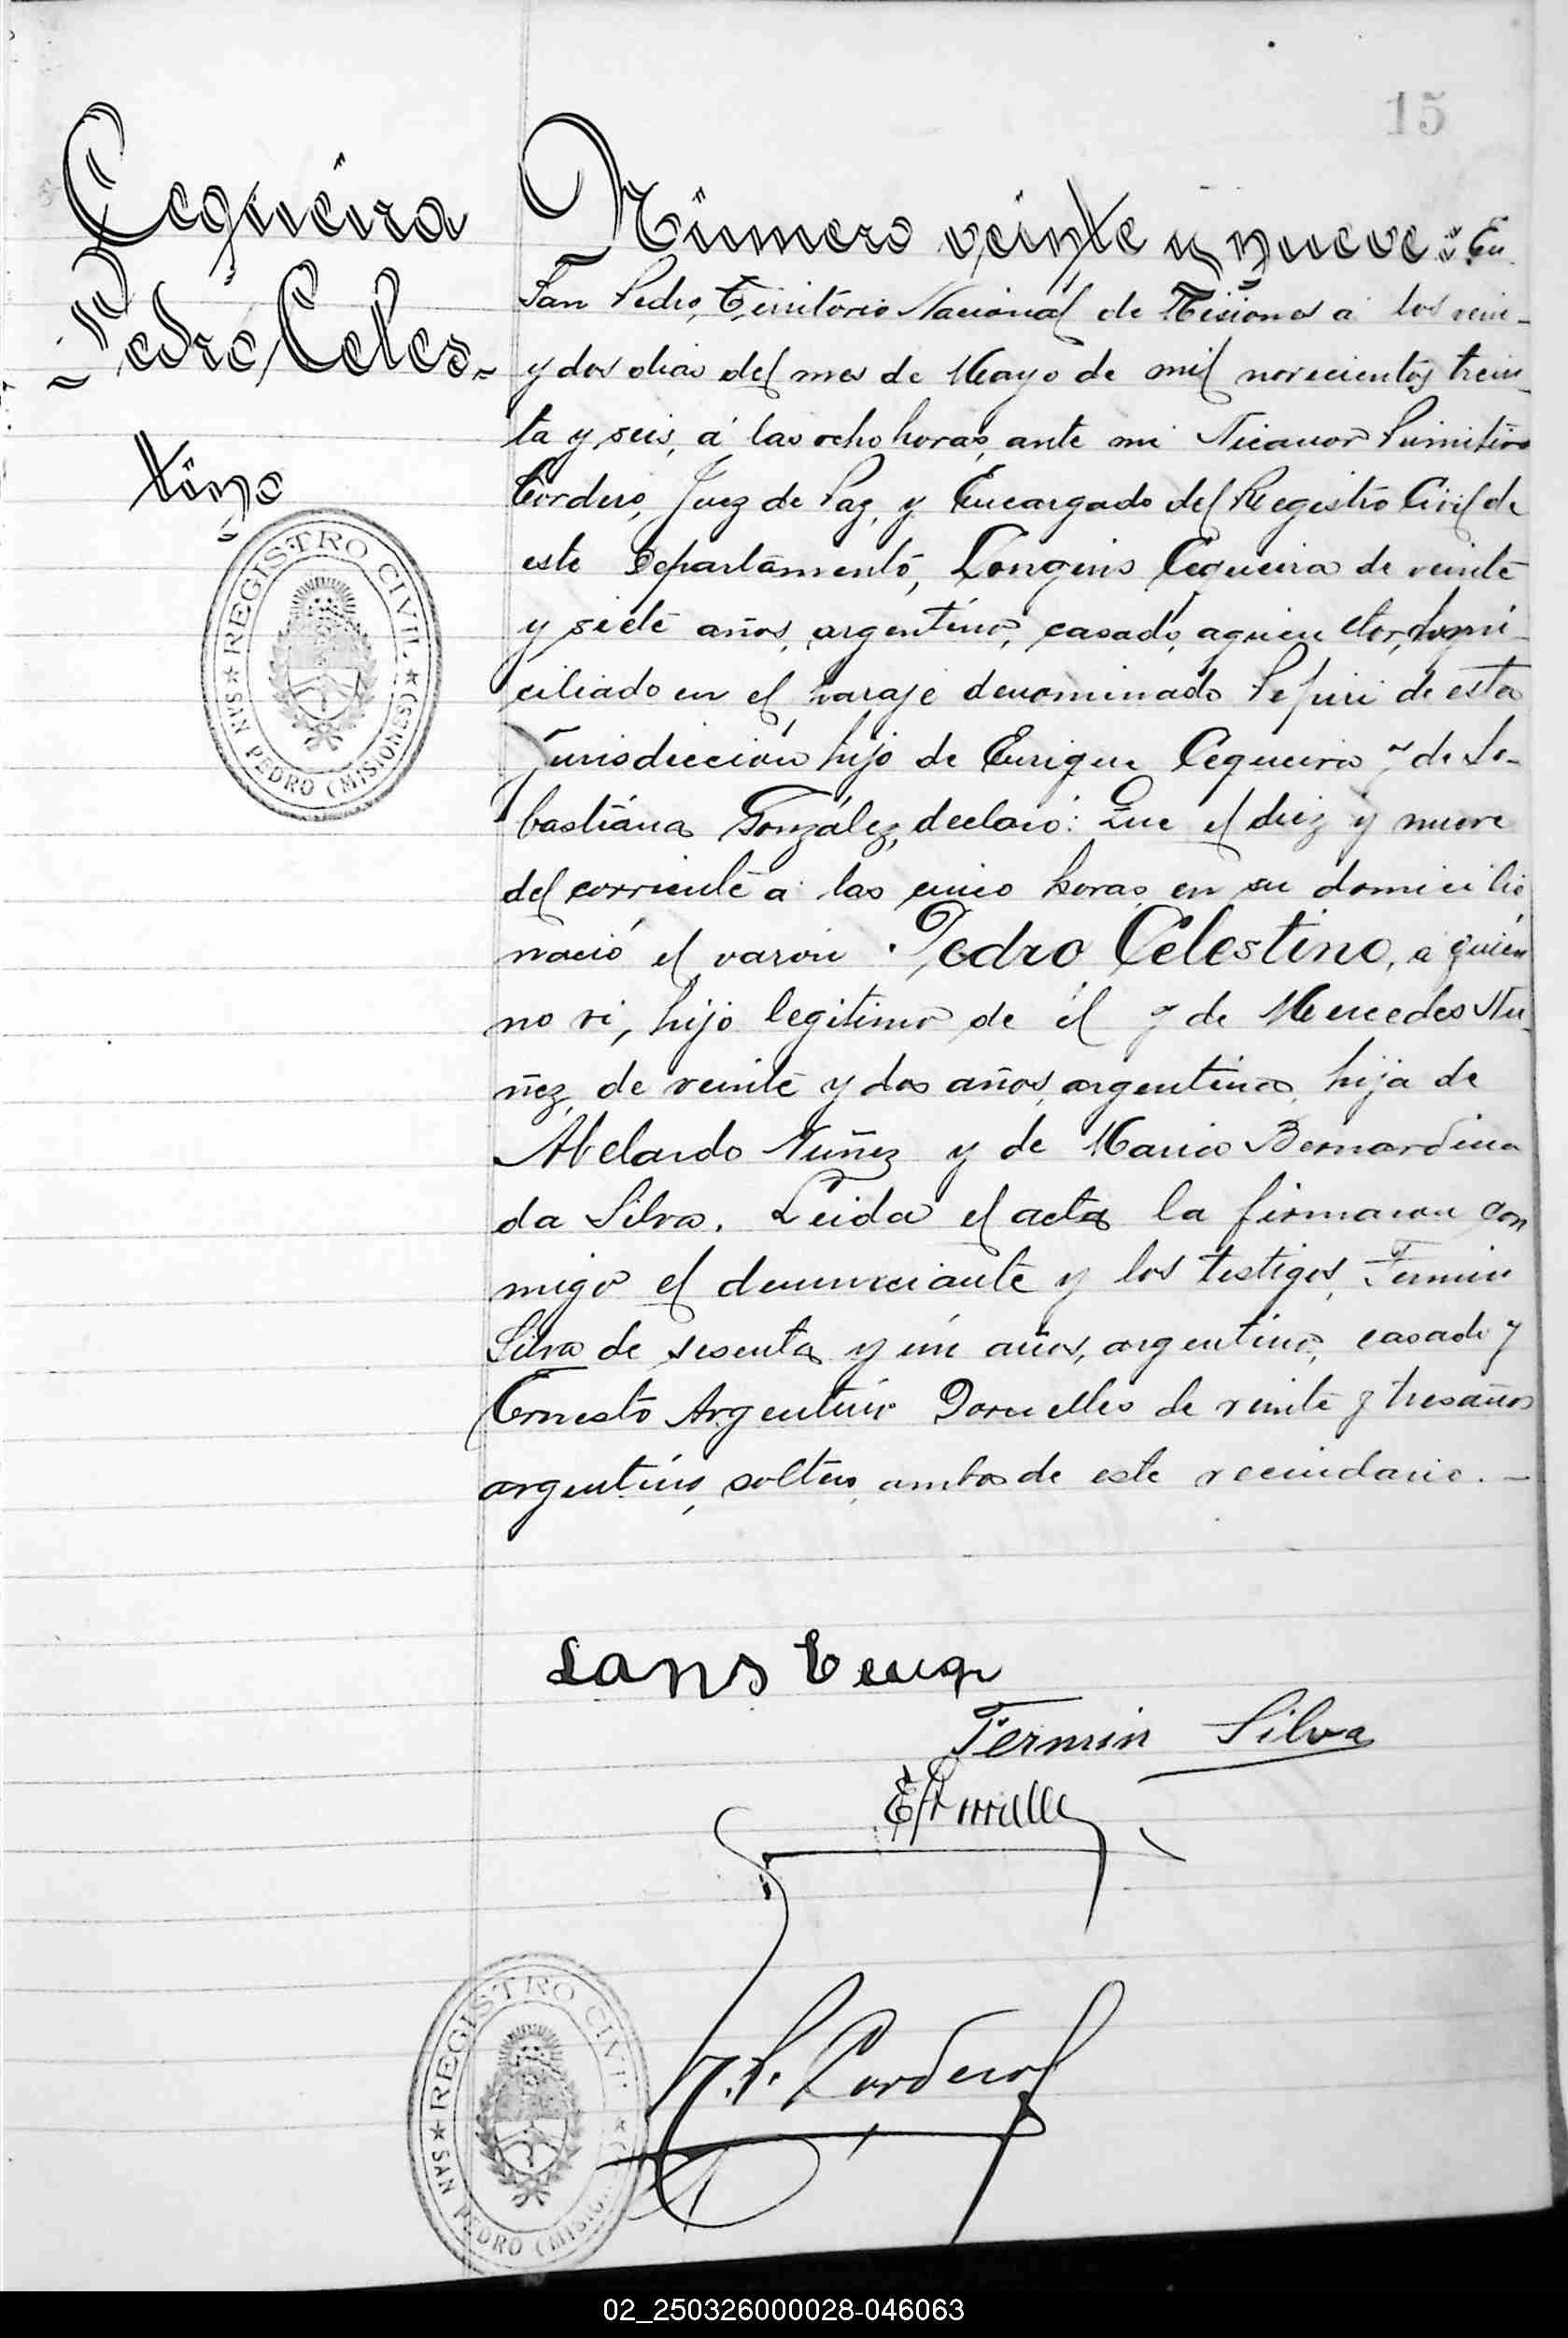 15
Cequeira
Pedro Celes-
tino
REGISTRO CIVIL
SAN PEDRO (MISIONES)
Número veinte y nueve: En
San Pedro, Territorio Nacional de Misiones a los vein-
y dos dias del mes de Mayo de mil novecientos trein-
ta y seis, á las ocho horas, ante mi Nicanor Primitivo
Cordero, Juez de Paz, y Encargado del Registro Civil de
este Departamento, Longino Cequeira de veinte
y siete años, argentino, casado, agricultor, domi-
ciliado en el paraje denominado Pepiri de esta
Jurisdiccion hijo de Enrique Cequeira y de Se-
bastiana González, declaró: Que el diez y nueve
del corriente a las cinco horas en su domicilio
nació el varón Pedro Celestino, a quién
no vi, hijo legitimo de él y de Mercedes Nu-
ñez, de veinte y dos años, argentina, hija de
Abelardo Nuñez y de Maria Bernardina
da Silva. Leida el acta la firmaron con
migo el denunciante y los testigos, Fermin
Silva de sesenta y un años, argentino, casado y
Ernesto Argentino Dornelles de veinte y tres años
argentino, soltero, ambos de este vecindario. -
Fermin Silva
N. P. Cordero
REGISTRO CIVIL
SAN PEDRO (MISIONES)
02_250326000028-046063